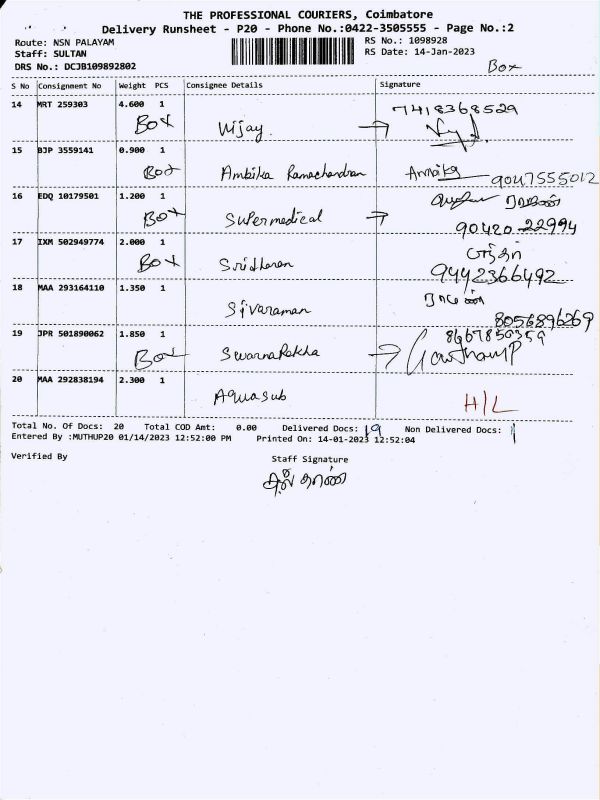 THE PROFESSIONAL COURIERS, Coimbatore
Delivery Runsheet - P20 - Phone No.:0422-3505555 - Page No.:2
Route: NSN PALAYAM
RS No.: 1098928
Staff: SULTAN
RS Date: 14-Jan-2023
DRS No.: DCJB109892802
Box
S No Consignment No Weight PCS Consignee Details Signature
14 MRT 259303 4.600 1 7418368529
Box Vijay
15 BJP 3559141 0.900 1
Box Ambika Ramachandran Ambika 9047555012
16 EDQ 10179501 1.200 1
Box Supermedical 90420 22994
17 IXM 502949774 2.000 1
Box Sridharan 9442366492
18 MAA 293164110 1.350 1
Sivaraman 8056896269
19 JPR 501890062 1.850 1 8667850359
Box SwarnaRekha GowthamP
20 MAA 292838194 2.300 1
Aquasub H/L
Total No. Of Docs: 20 Total COD Amt: 0.00 Delivered Docs: 19 Non Delivered Docs: 1
Entered By :MUTHUP20 01/14/2023 12:52:00 PM Printed On: 14-01-2023 12:52:04
Verified By Staff Signature